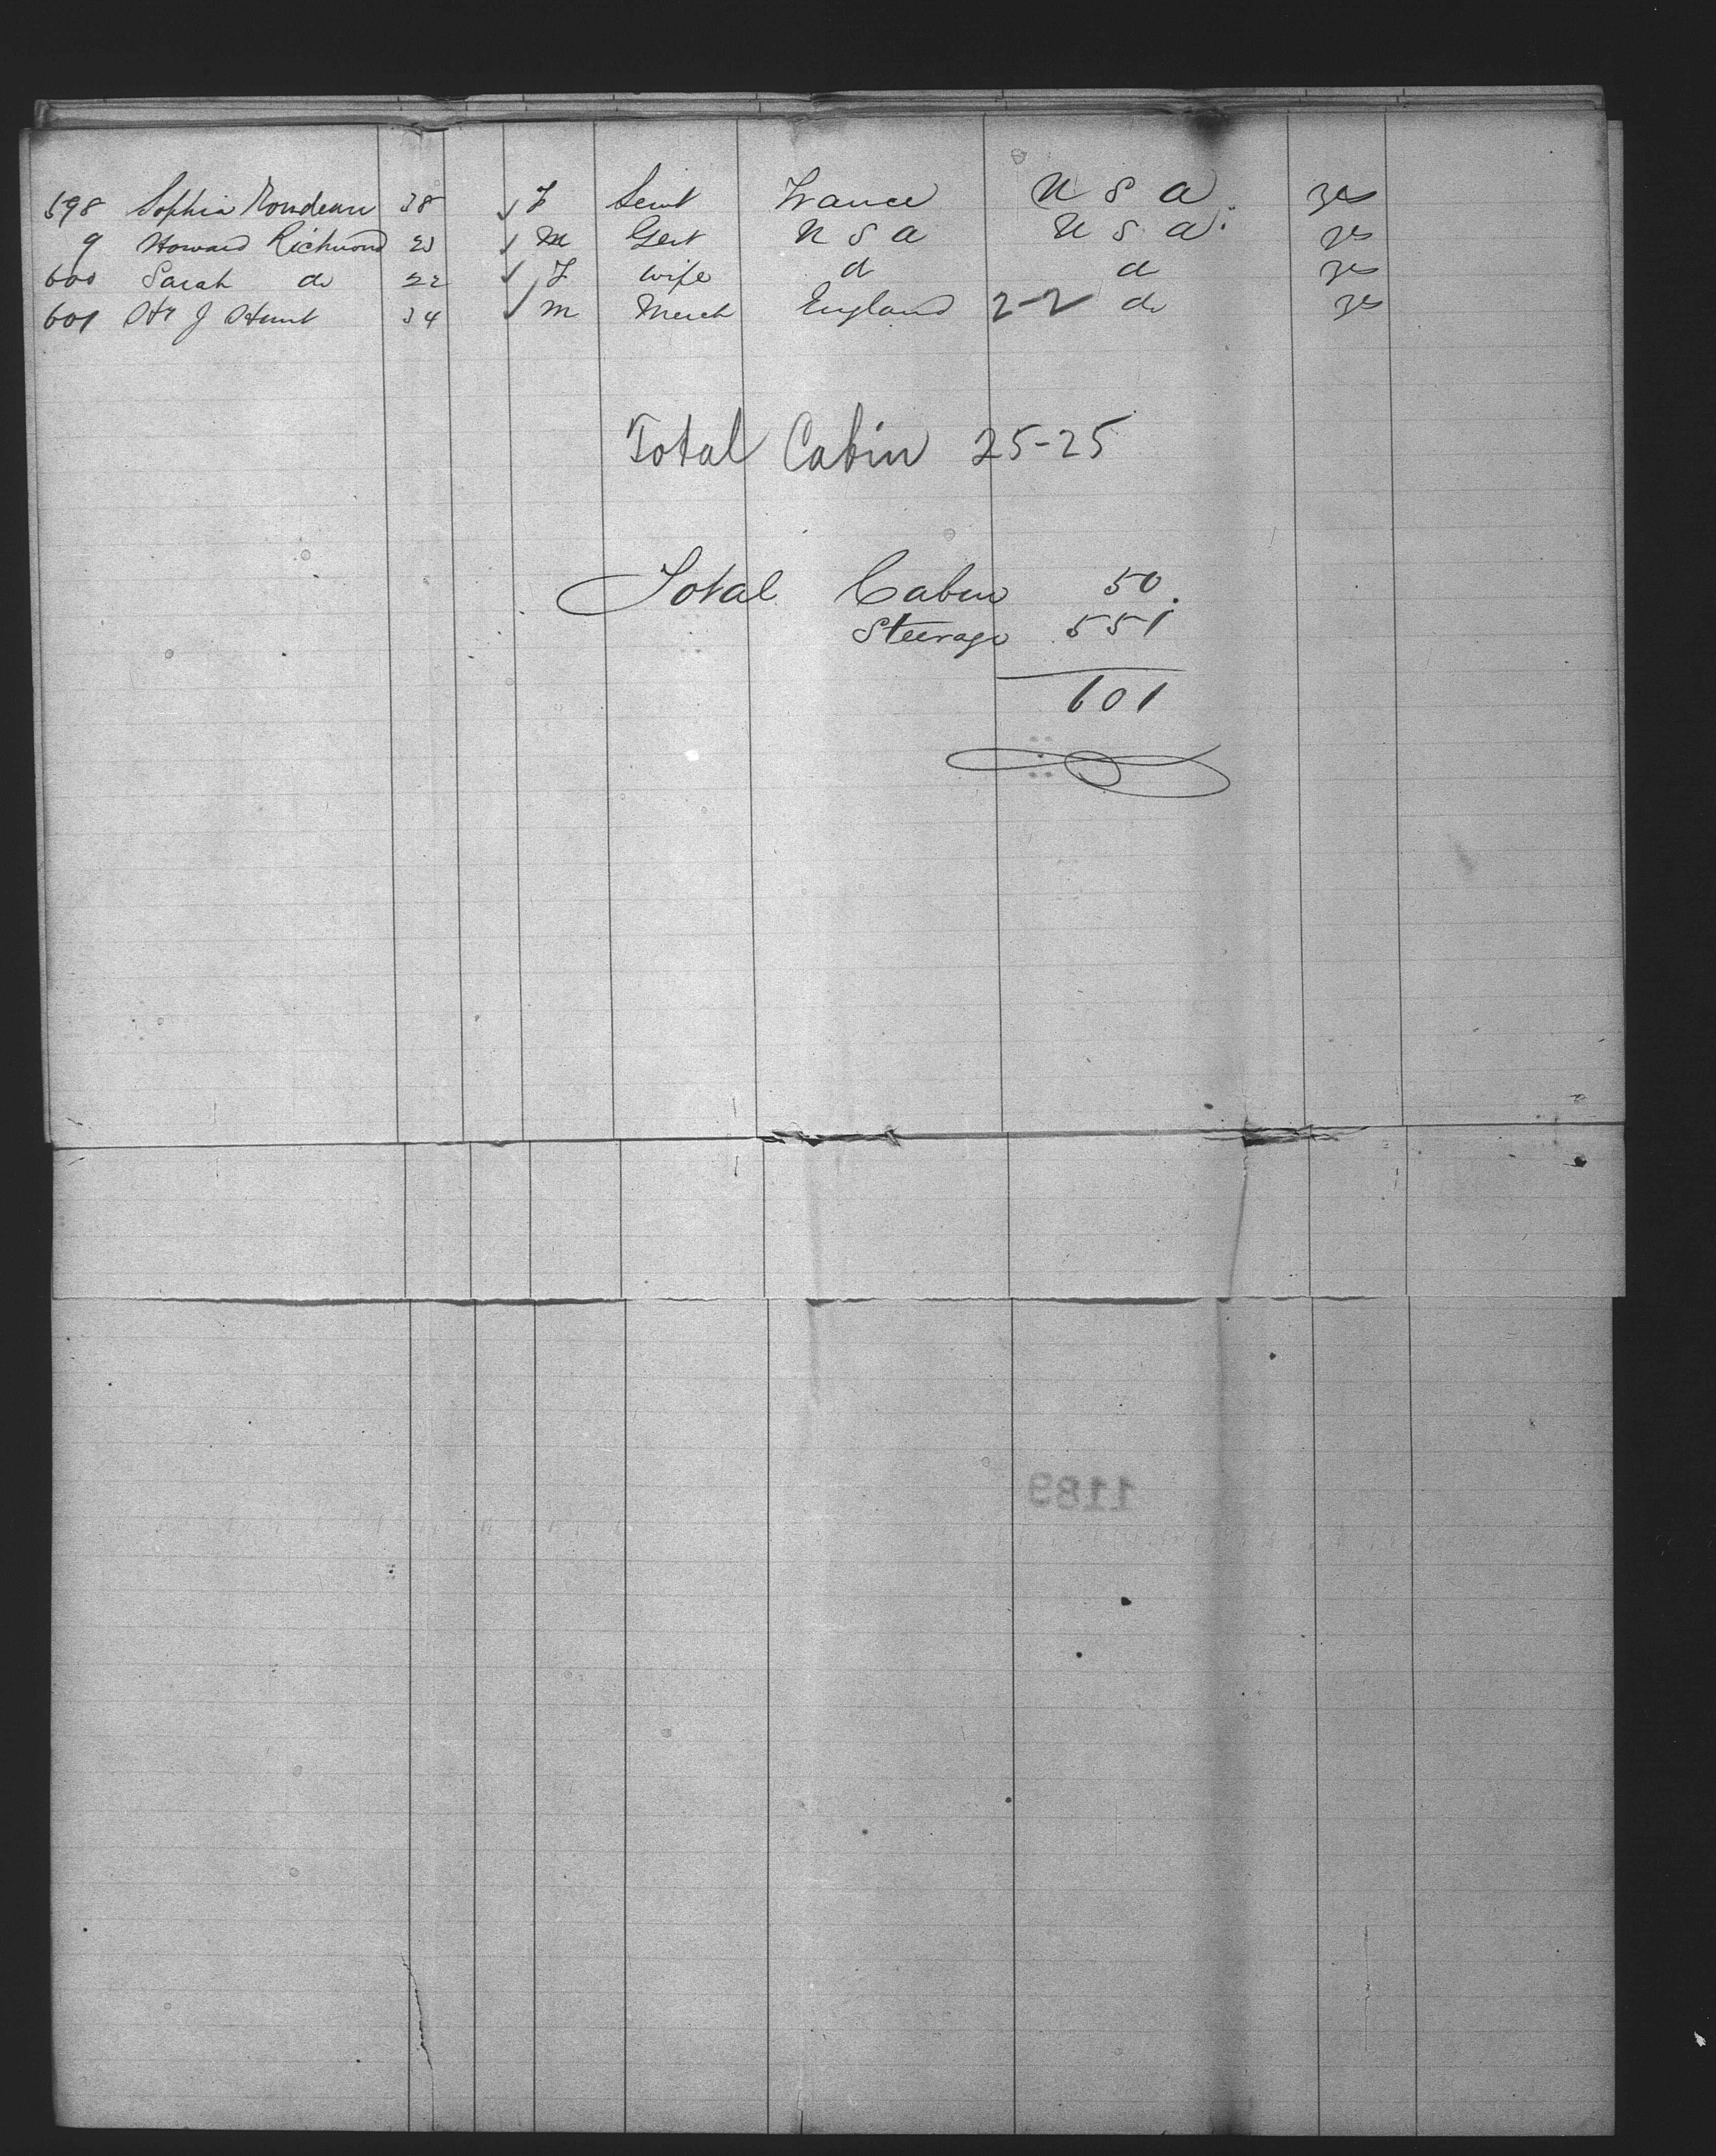 598 Sophia Rondeau 38 ✓ F Servt France U S A. yes
9 Howard Richmond 23 ✓ M Gent U S A U S A. yes
600 Sarah do 22 ✓ F wife d d yes
601 H J Hunt 34 ✓ M Merch England 2-2 do yes
Total Cabin 25-25
Total Cabin 50.
Steerage 551
601
1189